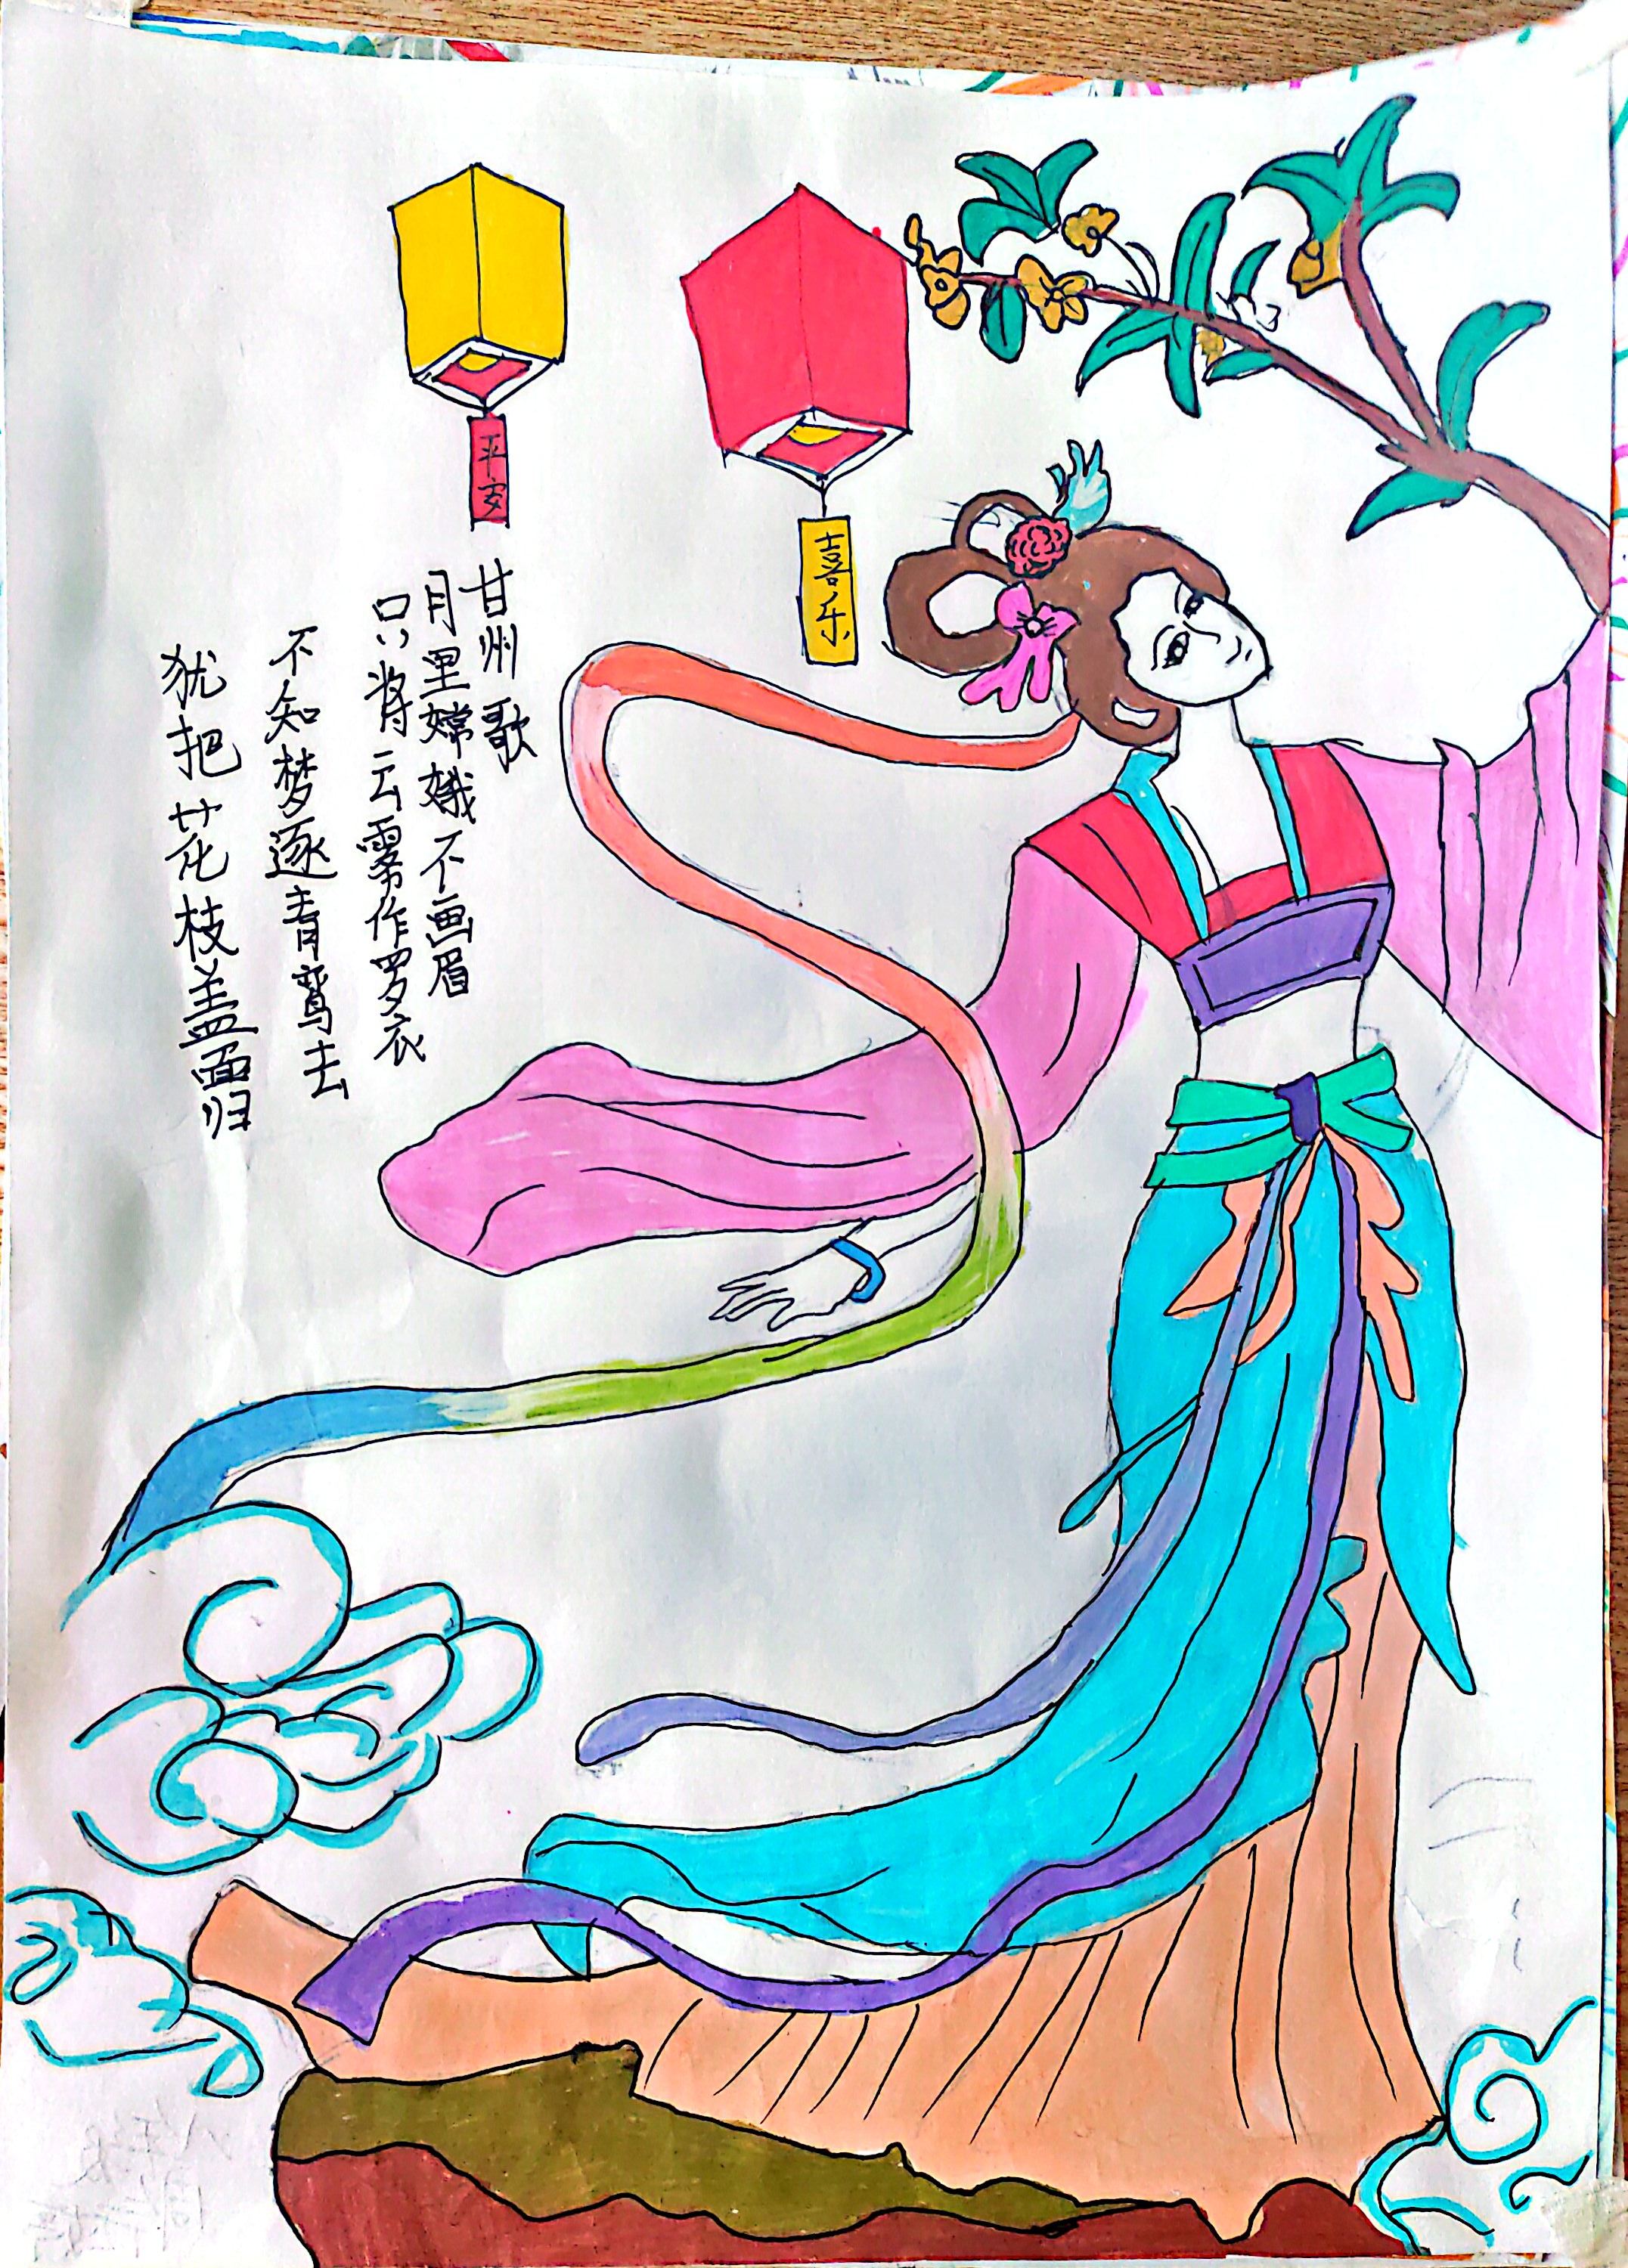 平安
喜乐
甘州歌
月里嫦娥不画眉
只将云雾作罗衣
不知梦逐青鸾去
犹把花枝盖面归